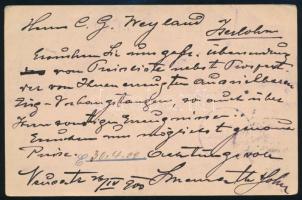 Herrn C. G. Weyland Iserlohn
Ersuchen Sie um gefl. Übersendung
von Preisliste nebst Prospect
der von Ihnen erzeugten
Zug-Vorhangstangen, so auch über
Ihre sonstige Erzeugnisse.
Ersuchen um möglichst genaue
Preise. 30.4.00 Achtungsvoll
26/IV 900 & Sohn